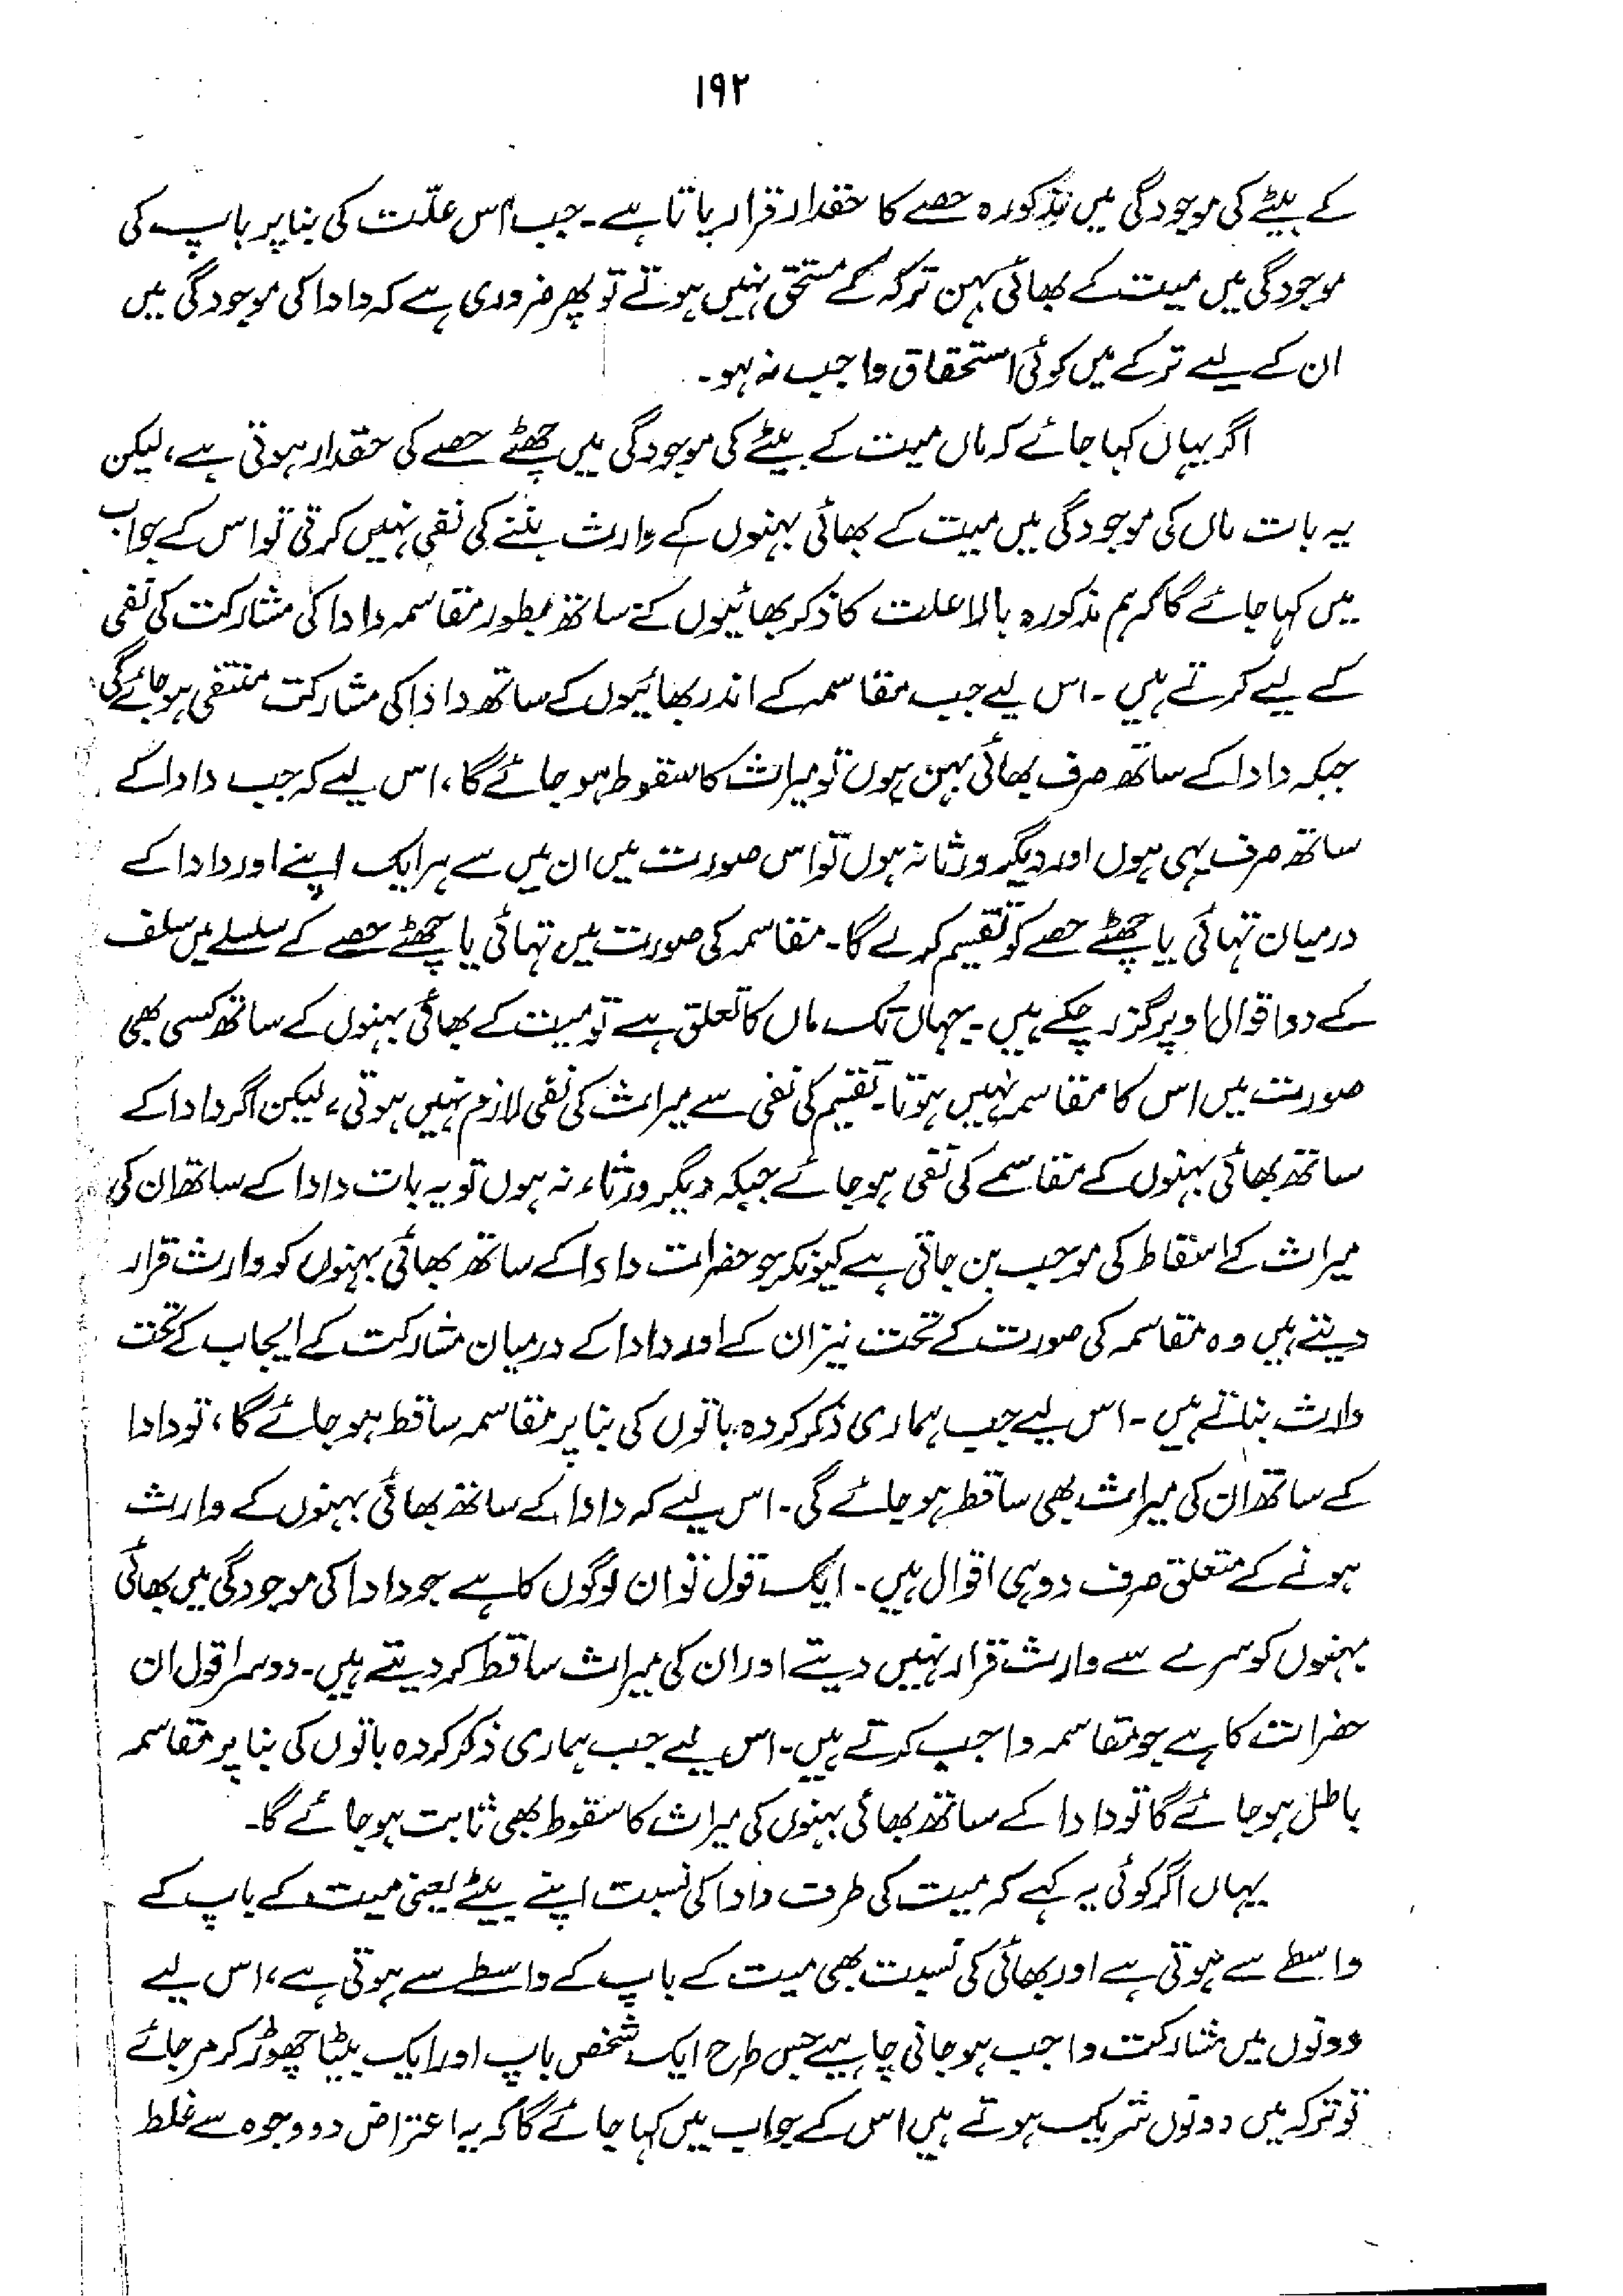 ۱۹۲
کے بیٹے کی موجودگی میں مذکورہ حصے کا حقدار قرار پاتا ہے۔ جب اس علّت کی بنا پر باپ کی
موجودگی میں میت کے بھائی بہن ترکہ کے مستحق نہیں ہوتے تو پھر ضروری ہے کہ دادا کی موجودگی میں
ان کے لیے ترکے میں کوئی استحقاق واجب نہ ہو۔
اگر یہاں کہا جائے کہ ماں میت کے بیٹے کی موجودگی میں چھٹے حصے کی حقدار ہوتی ہے، لیکن
یہ بات ماں کی موجودگی میں میت کے بھائی بہنوں کے وارث بننے کی نفی نہیں کرتی تو اس کے جواب
میں کہا جائے گا کہ ہم مذکورہ بالا علت کا ذکر بھائیوں کے ساتھ بطور مقاسمہ دادا کی مشارکت کی نفی
کے لیے کرتے ہیں۔ اس لیے جب مقاسمہ کے اندر بھائیوں کے ساتھ دادا کی مشارکت منتفی ہو جائے گی
جبکہ دادا کے ساتھ صرف بھائی بہن ہوں تو میراث کا سقوط ہو جائے گا، اس لیے کہ جب دادا کے
ساتھ صرف یہی ہوں اور دیگر ورثا نہ ہوں تو اس صورت میں ان میں سے ہر ایک اپنے اور دادا کے
درمیان تہائی یا چھٹے حصے کو تقسیم کرلے گا۔ مقاسمہ کی صورت میں تہائی یا چھٹے حصے کے سلسلے میں سلف
کے دو اقوال اوپر گزر چکے ہیں۔ جہاں تک ماں کا تعلق ہے تو میت کے بھائی بہنوں کے ساتھ کسی بھی
صورت میں اس کا مقاسمہ نہیں ہوتا۔ تقسیم کی نفی سے میراث کی نفی لازم نہیں ہوتی، لیکن اگر دادا کے
ساتھ بھائی بہنوں کے مقاسمے کی نفی ہو جائے جبکہ دیگر ورثاء نہ ہوں تو یہ بات دادا کے ساتھ ان کی
میراث کے اسقاط کی موجب بن جاتی ہے کیونکہ جو حضرات دادا کے ساتھ بھائی بہنوں کو وارث قرار
دیتے ہیں وہ مقاسمہ کی صورت کے تحت نیز ان کے اور دادا کے درمیان مشارکت کے ایجاب کے تحت
وارث بناتے ہیں۔ اس لیے جب ہماری ذکر کردہ باتوں کی بنا پر مقاسمہ ساقط ہو جائے گا، تو دادا
کے ساتھ ان کی میراث بھی ساقط ہو جائے گی۔ اس لیے کہ دادا کے ساتھ بھائی بہنوں کے وارث
ہونے کے متعلق صرف دو ہی اقوال ہیں۔ ایک قول تو ان لوگوں کا ہے جو دادا کی موجودگی میں بھائی
بہنوں کو سرے سے وارث قرار نہیں دیتے اور ان کی میراث ساقط کر دیتے ہیں۔ دوسرا قول ان
حضرات کا ہے جو مقاسمہ واجب کرتے ہیں۔ اس لیے جب ہماری ذکر کردہ باتوں کی بنا پر مقاسمہ
باطل ہو جائے گا تو دادا کے ساتھ بھائی بہنوں کی میراث کا سقوط بھی ثابت ہو جائے گا۔
یہاں اگر کوئی یہ کہے کہ میت کی طرف دادا کی نسبت اپنے بیٹے یعنی میت کے باپ کے
واسطے سے ہوتی ہے اور بھائی کی نسبت بھی میت کے باپ کے واسطے سے ہوتی ہے، اس لیے
دونوں میں مشارکت واجب ہو جانی چاہیے جس طرح ایک شخص باپ اور ایک بیٹا چھوڑ کر مر جائے
تو ترکہ میں دونوں شریک ہوتے ہیں اس کے جواب میں کہا جائے گا کہ یہ اعتراض دو وجوہ سے غلط